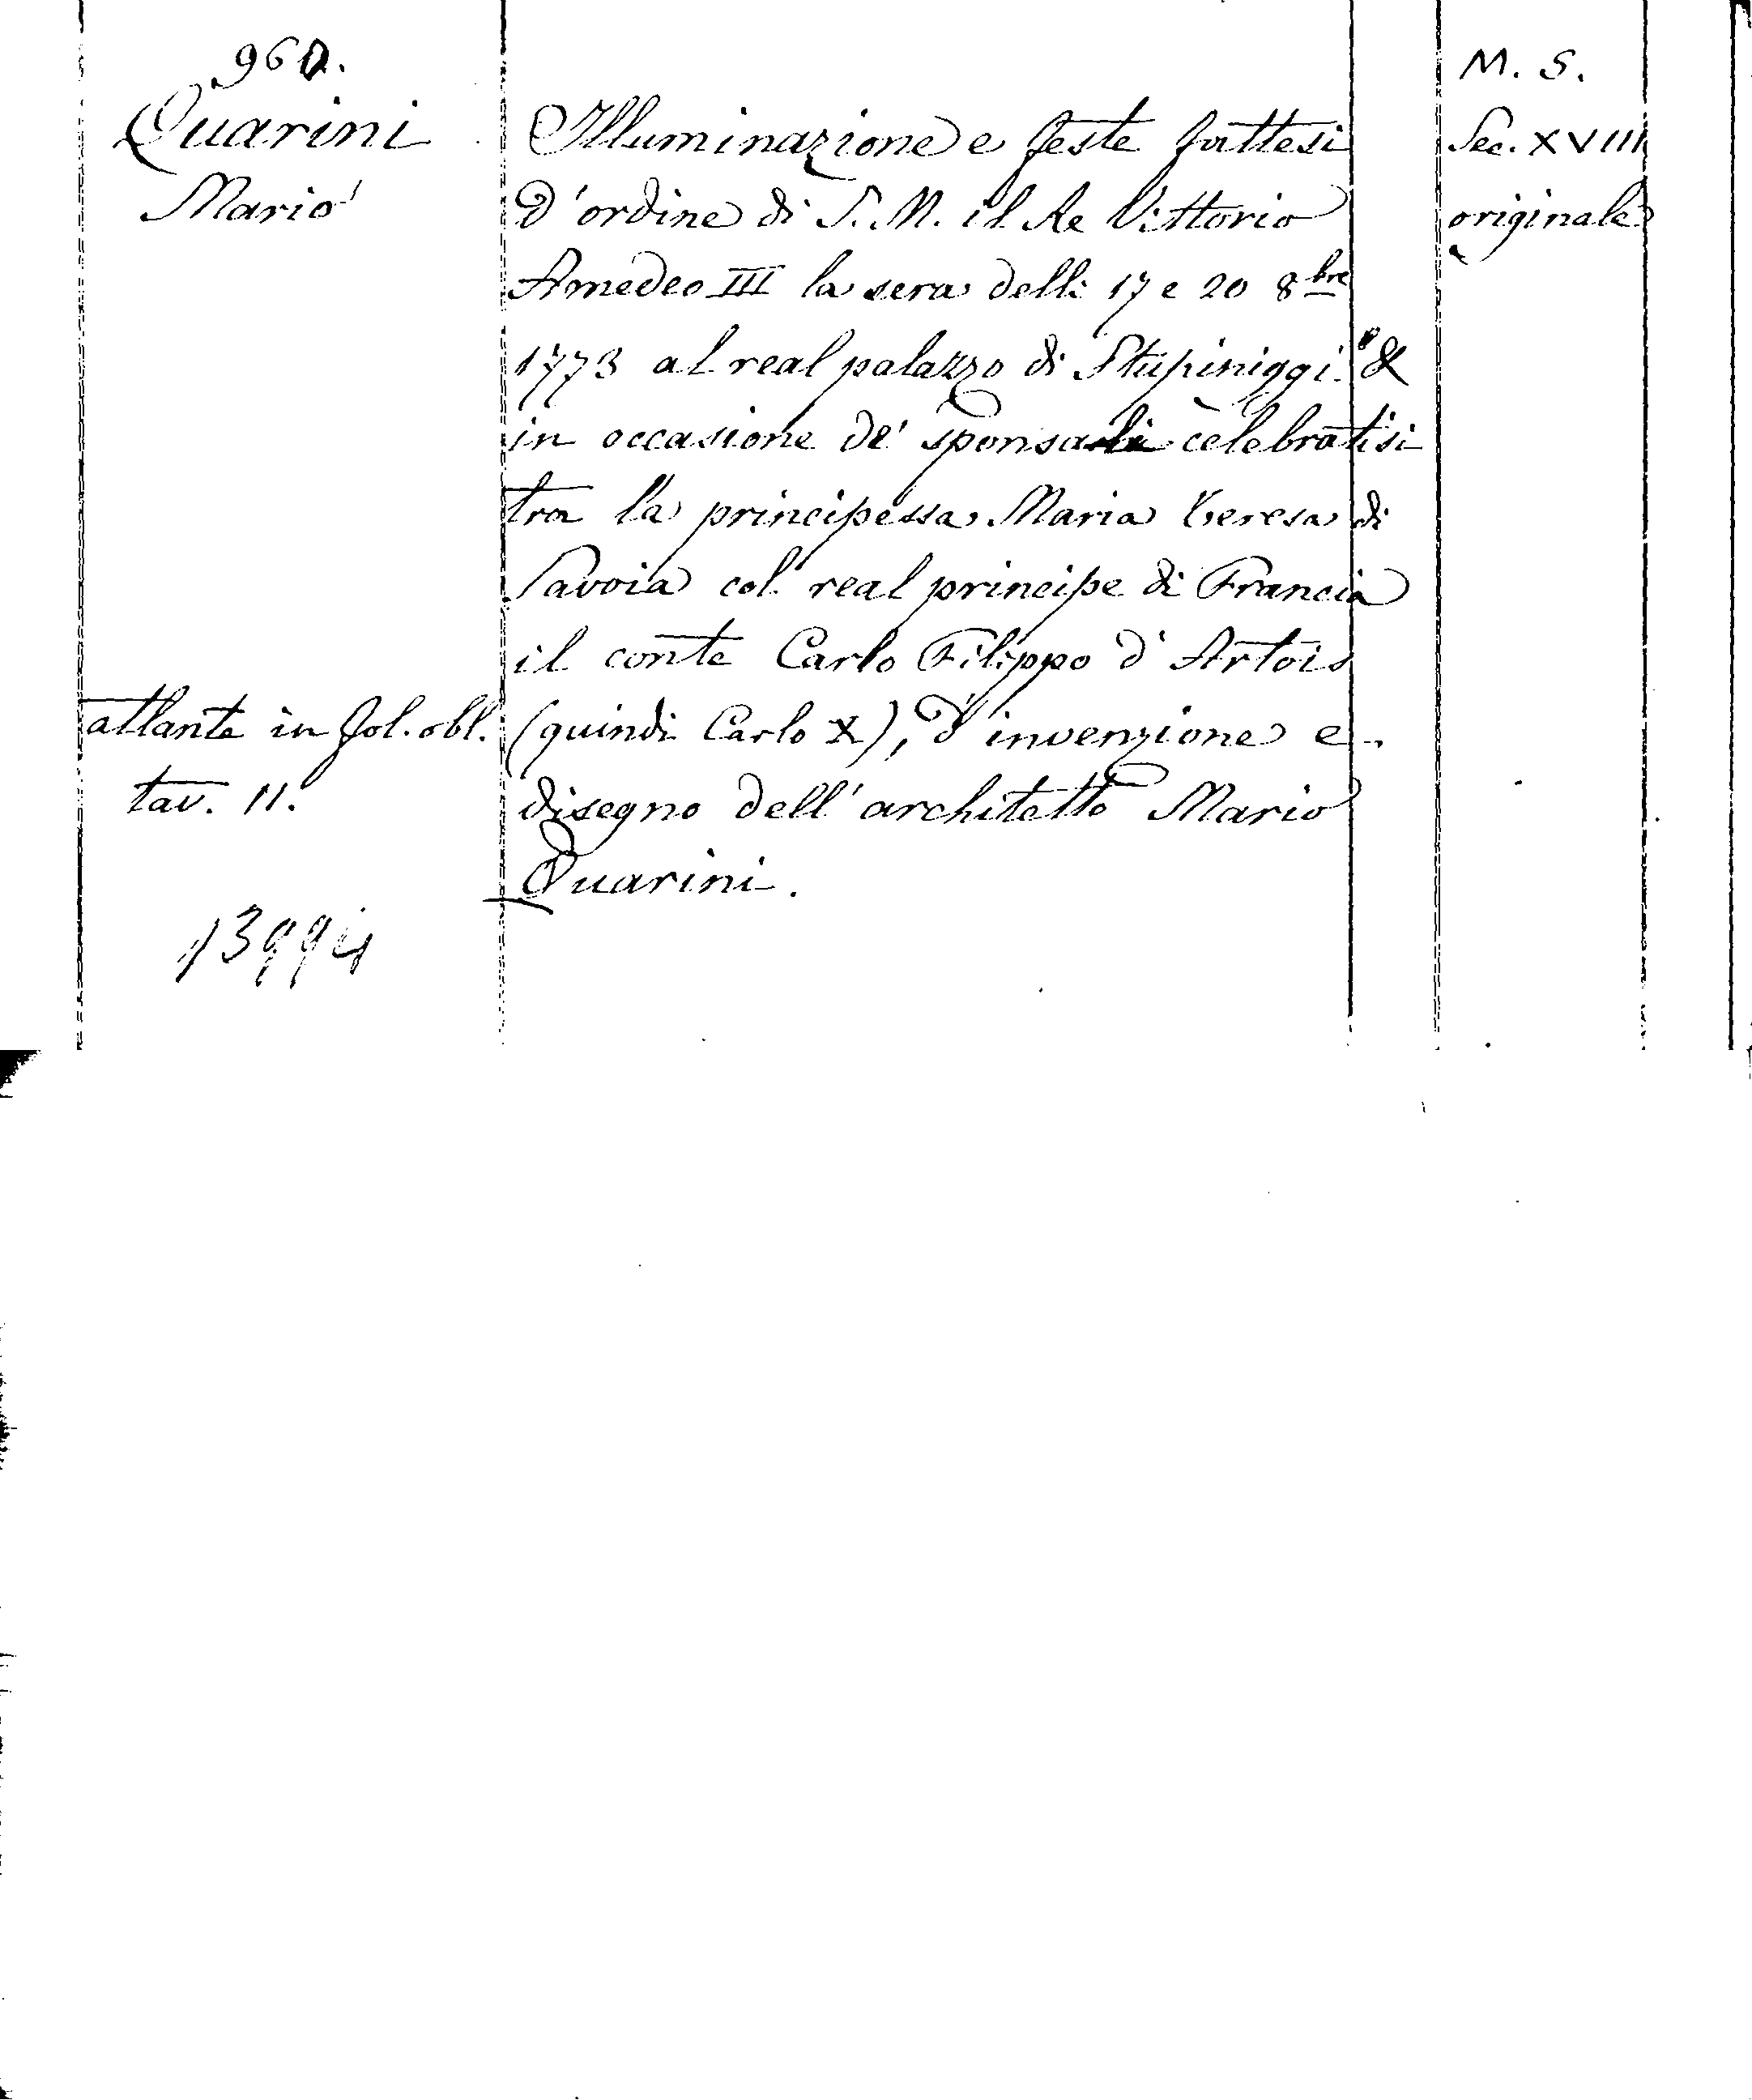 960.
Quarini
Mario
atlante in fol. obl.
tav. 11.
13994
Illuminazione e feste fattesi
d'ordine di S. M. il Re Vittorio
Amedeo III la sera delli 17 e 20 8bre
1773 al real palazzo di Stupiniggi &
in occasione de' sponsali celebratisi
tra la principessa Maria Teresa di
Savoia col real principe di Francia
il conte Carlo Filippo d'Artois
(quindi Carlo X), d'invenzione e
disegno dell'architetto Mario
Quarini.
M. S.
Sec. XVIII
originale